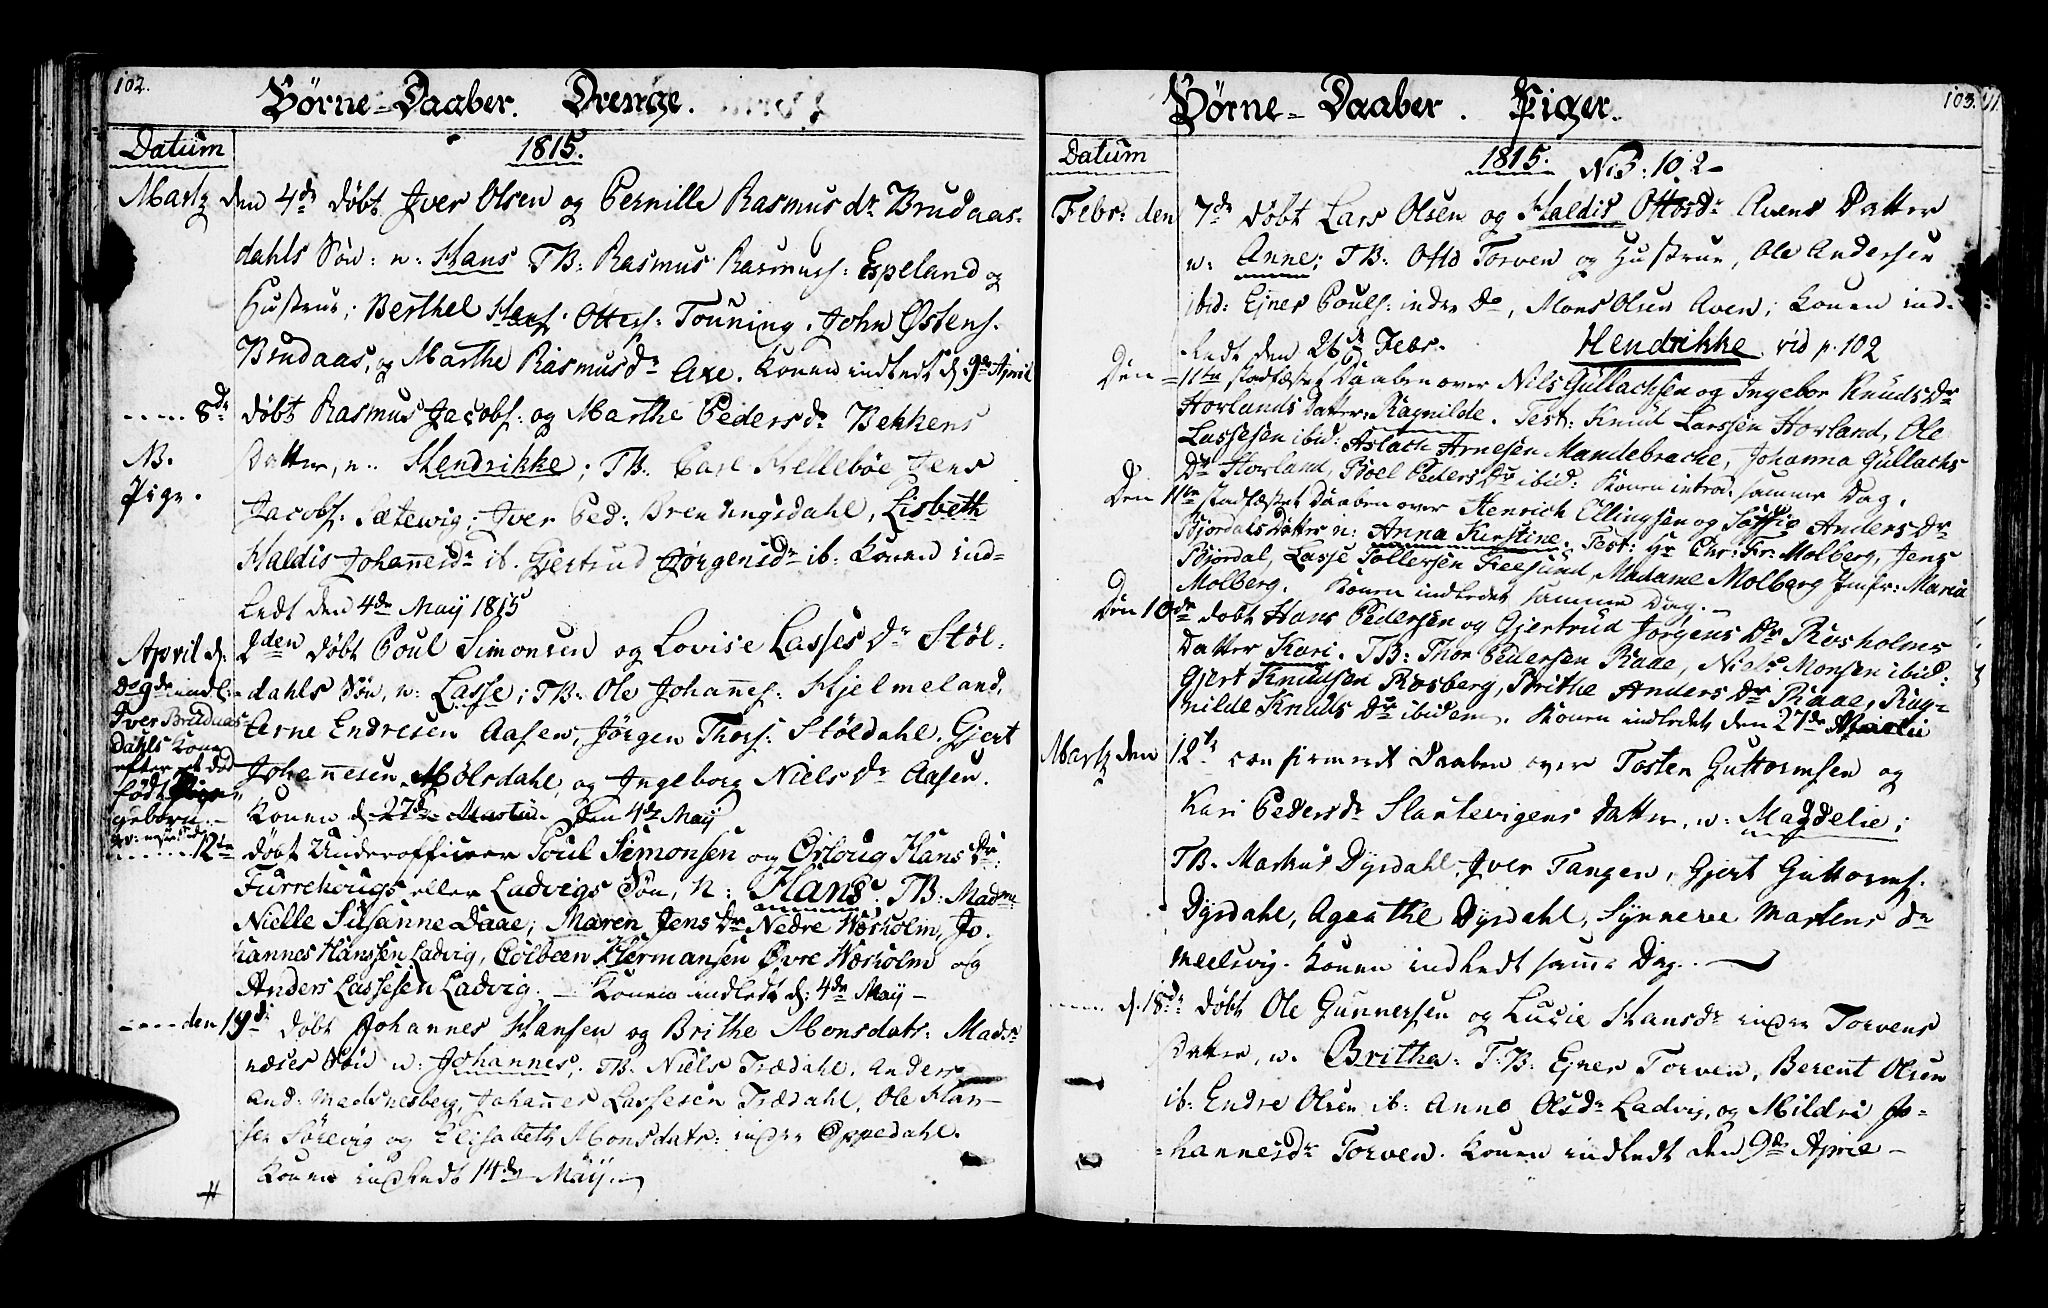 102.
Börne-Daaber. Drenge.
Datum
1815.
Martz den 4de döbt Jver Olsen og Pernille Rasmus dr Brudaas-
dahls Sön: n: Hans TB: Rasmus Rasmuss: Espeland og
Hustrue; Berthel Hans: Otters: Touning, John Østens.
Brudaas, og Marthe Rasmusdr Axe. Konen indledt d 9de April
8de döbt Rasmus Jacobs: og Marthe Pedersdr Bekkens
NB. Pige.
Datter, n. Hendrikke; TB. Carl Hellebøe Jens
Jacobs. Sætewig; Jver Ped: Brendingsdahl, Lisbeth
Haldis Johannesdr ib. Gjertrud Jørgensdr ib: Konen ind-
ledt den 4de Maÿ 1815
April d. 2den döbt Poul Simonsen og Lovise Lasses Dr Stöl-
dahls Sön, n: Lasse; TB. Ole Johannes: Hjelmeland,
Arne Endresen Aasen, Jørgen Thors: Stöldahl. Gjert
Johannesen Mölsdahl, og Jngeborg Niels dr Aasen.
Konen d. 27de Martii den 4de Maÿ
Do 9de indl:
Jver Brudaas-
dahls Kone
efter et död
född
12te döbt Underofficeer Poul Simonsen og Orloug Hans Dr
Furrehougs eller Ladvigs Sön, n: Hans. TB: Madme
Nielle Susanne Daae; Maren Jens Dr Nedre Wæsholm, Jo.
hannes Hanssen Ladvig, Colbeen Hermansen Øvre Wæsholm og
Anders Lassesen Ladvig. — Konen indledt d: 4de Maÿ —
den 19de döbt Johannes Hansen og Brithe Monsdatr: Mads-
næses Sön n: Johannes, TB. Niels Trædahl, Anders
And: Madsnesberg, Johannes Lassesen Trædahl, Ole Han-
sen Sörevig og Elisabeth Monsdatr: indre Oppedahl.
Konen indledt 14de Maÿ.
103.
Börne-Daaber. Piger.
Datum
1815. NB: 102-
Febr: den 7de döbt Lars Olsen og Haldis Ottosdr Avens Datter
n: Anne; TB: Otto Torven og Hustrue, Ole Andersen
ibid: Ejner Pouls: indre Do, Mons Olsen Aven; Konen ind-
ledt den 26de Febr.
Hendrikke vid p. 102
Den 11te stadfæstet Daaben over Nils Gullachsen og Ingebor Knuds Dr
Horlands Datter: Ragnilde. Test: Knud Larssen Horland, Ole
Lassesen ibid: Aslach Arnesen Mandebracke, Johanna Gullachs
Dr Horland, Boel Peders Dr ibid: Konen introd. samme Dag.
Den 11te stadfæstet Daaben over Henrich Ellingsen og Soffie Anders Dr
Bjordals Datter n: Anna Kirstine. Test: Hr Chr: Fr: Molberg, Jens
Bjordal, Lasse Tollefsen Feesund, Madame Molberg Jmfr: Maria
Molberg. Konen indledet samme Dag. —
Den 10de döbt Hans Pedersen og Gjertrud Jörgens Dr Risholms
Datter Kari. TB: Thor Pedersen Raae, Niels Monsen ibid:
Gjert Knudsen Rosberg, Brithe Anders Dr Raae, Rag-
nilde Knuds Dr ibidem. Konen indledet den 27de
Martz den 12te confirmert Daaben over Tosten Guttormsen og
Kari Pedersdr Slautevigens Datter, n: Magdelie;
TB. Markus Dysdahl, Jver Tangen, Gjert Guttorms.
Dysdahl, Agathe Dysdahl, Synneve Martens dr
Meelsvig. Konen indledt samme Dag. —
d. 18de döbt Ole Gunnersen og Lucie Hansdr indre Torvens
Datter, n. Britha. TB: Ejner Torven, Berent Olsen
ib: Endre Olsen ib: Anne Olsdr Ladvig, og Mildri Jo-
hannesdr Torven. Konen indledt den 9de April —